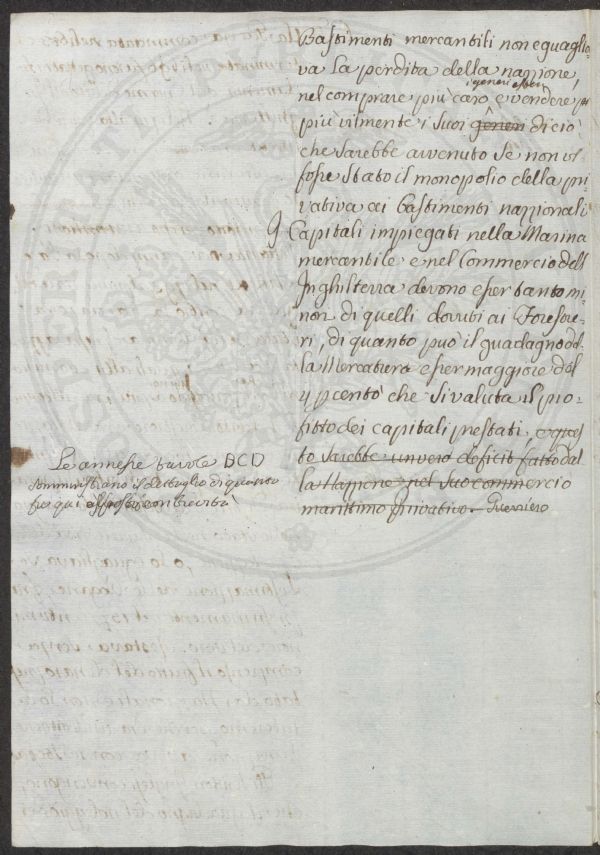 Bastimenti mercantili non eguaglia-
va la perdita della nazzione,
generi esteri
nel comprare più caro, e vendere per
più vilmente i suoi generi di ciò
che sarebbe avvenuto se non vi
fosse stato il monopolio della pri
vativa ai bastimenti nazzionali
I Capitali impiegati nella Marina
mercantile e nel Commercio dell
Inghilterra devono esser tanto mi-
nori di quelli dovuti ai Foresti-
ri, di quanto può il guadagno del
la Mercatura esser maggiore del
4 pcento che si valuta il pro-
fitto dei capitali prestati, e ques
to sarebbe un vero deficit fatto dal
la Nazzione nel suo commercio
marittimo privativo.
Le annesse tavole BCD
somministrano il dettaglio di quanto
fu qui esposto con brevità